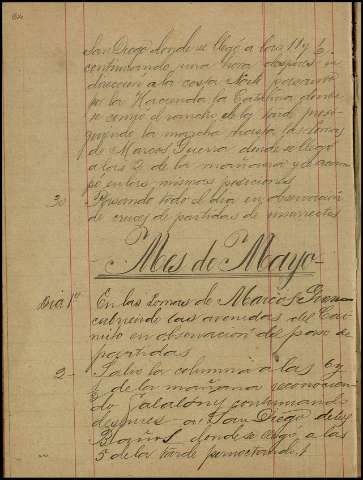 San Diego donde se llegó a las 11 y ½
continuando una hora despues en
direccion a la costa Norte pasando
por la Hacienda la Catalina donde
se comió el rancho de la tarde, prosi-
guiendo la marcha hasta las Lomas
de Marcos Guerra donde se llegó
a las 2 de la mañana y se acam
pó en las mismas posiciones
30 Pasando todo el dia en observacion
de cruces de partidas de insurrectos
Mes de Mayo
Dia 1º En las Lomas de Marcos Guerra
cubriendo las avenidas del Ca-
mino en observacion del paso de
partidas
2 - Salió la columna a las 6 y
½ de la mañana reconocien
do continuando
despues a San Diego de los
Baños, donde se llegó a las
5 de la tarde pernoctando.